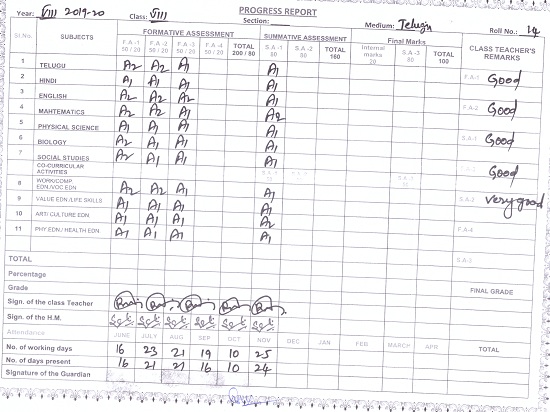 PROGRESS REPORT
Year: VIII 2019-20 Class: VIII Section: Medium: Telugu Roll No.: 14
Sl.No. SUBJECTS FORMATIVE ASSESSMENT SUMMATIVE ASSESSMENT Final Marks CLASS TEACHER'S REMARKS
F.A-1 50 / 20 F.A-2 50 / 20 F.A-3 50 / 20 F.A-4 50 / 20 TOTAL 200 / 80 S.A-1 80 S.A-2 80 TOTAL 160 Internal marks 20 S.A-3 80 TOTAL 100
1 TELUGU A2 A2 A1 A1 F.A-1 Good
2 HINDI A1 A1 A1 A1
3 ENGLISH A2 A2 A1 A1 F.A-2 Good
4 MAHTEMATICS A2 A2 A1 A2
5 PHYSICAL SCIENCE A1 A1 A1 A1 S.A-1 Good
6 BIOLOGY A2 A1 A1 A1
7 SOCIAL STUDIES A2 A1 A1 A1 Good
CO-CURRICULAR ACTIVITIES
8 WORK/COMP. EDN./VOC EDN A2 A2 A1 A1 S.A-2 Very good
9 VALUE EDN./LIFE SKILLS A1 A1 A1 A1
10 ART/ CULTURE EDN A1 A1 A1 A2 F.A-4
11 PHY.EDN./ HEALTH EDN. A1 A1 A1 A1
TOTAL S.A-3
Percentage
Grade FINAL GRADE
Sign. of the class Teacher
Sign. of the H.M.
Attendance JUNE JULY AUG SEP OCT NOV DEC JAN FEB MARCH APR TOTAL
No. of working days 16 23 21 19 10 25
No. of days present 16 21 21 16 10 24
Signature of the Guardian